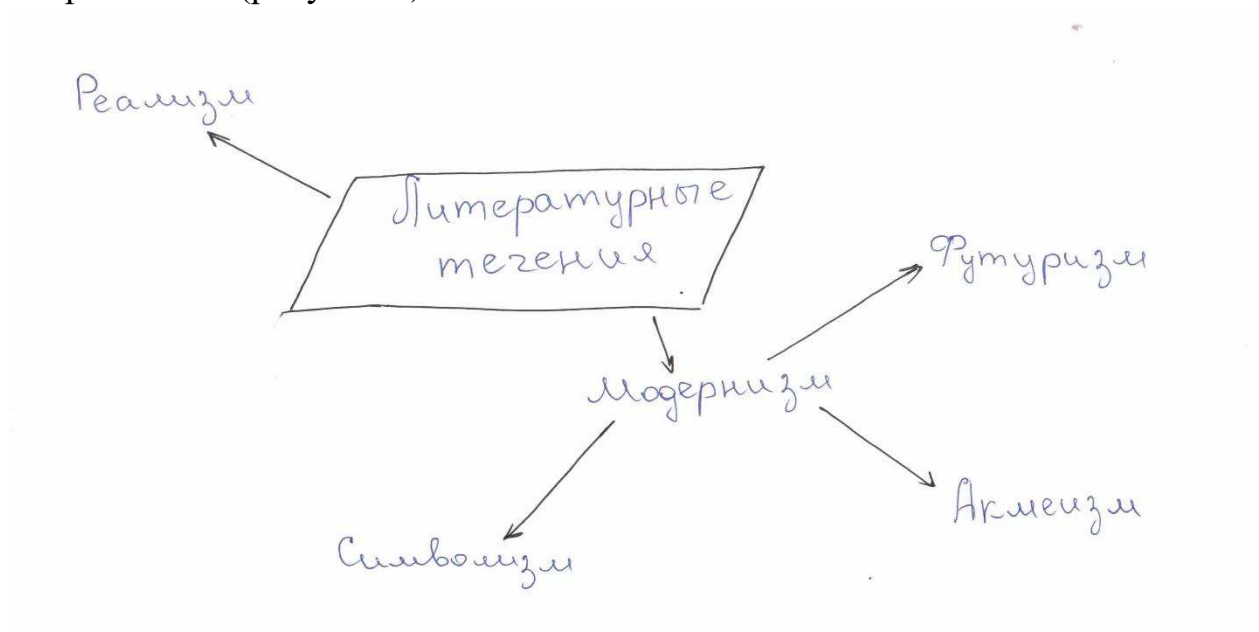 Реализм
Литературные
течения
Футуризм
Модернизм
Акмеизм
Символизм